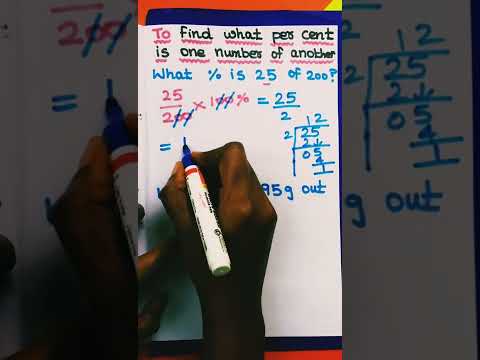 To find what per cent
is one number of another
What % is 25 of 200?
25/200 × 100 % = 25/2
12
2 25
2↓
05
4
1
= 1
95g out